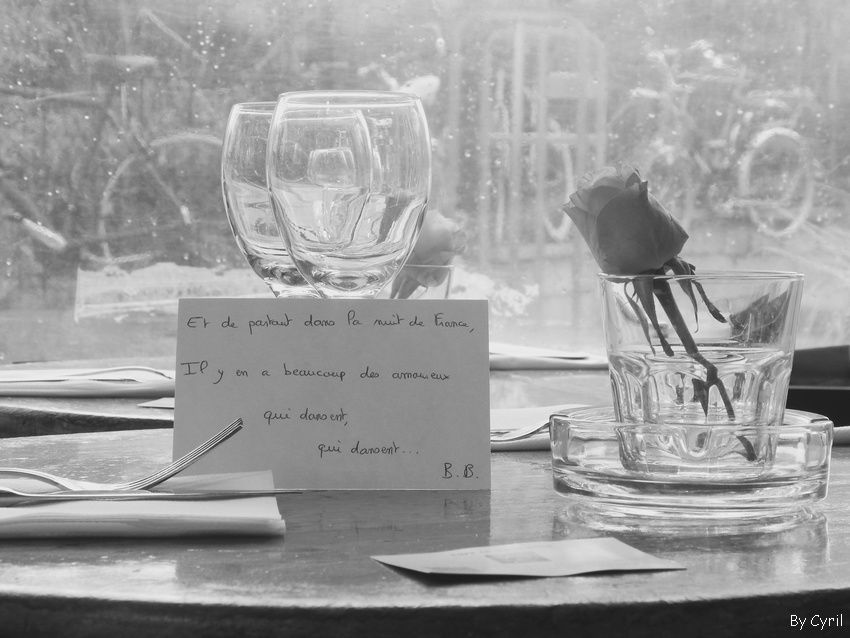 Et de partout dans la nuit de France,
Il y en a beaucoup des amoureux
qui dansent,
qui dansent...
B.B.
By Cyril